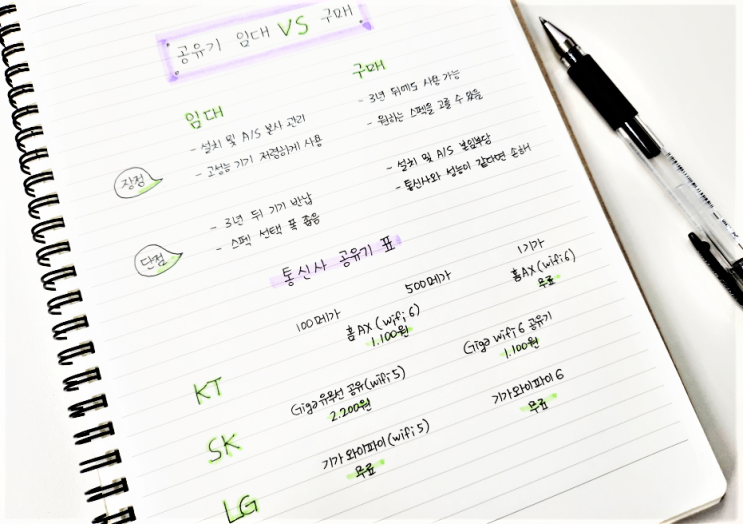 공유기 임대 VS 구매
임대
- 설치 및 A/S 본사 관리
- 고성능 기기 저렴하게 사용
구매
- 3년 뒤에도 사용 가능
- 원하는 스펙을 고를 수 있음
장점
- 3년 뒤 기기 반납
- 스펙 선택 폭 좁음
- 설치 및 A/S 본인부담
- 통신사와 성능이 같다면 손해
단점
통신사 공유기 표
100메가 500메가 1기가
KT
홈AX (wifi 6)
1.100원
홈AX (wifi 6)
무료
SK
Giga 유무선 공유 (wifi 5)
2.200원
Giga wifi 6 공유기
1.100원
LG
기가 와이파이 (wifi 5)
무료
기가 와이파이 6
무료